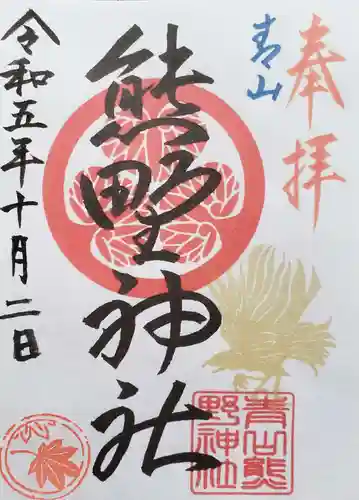 奉拝
青山
熊野神社
令和五年十月二日
青山熊
野神社